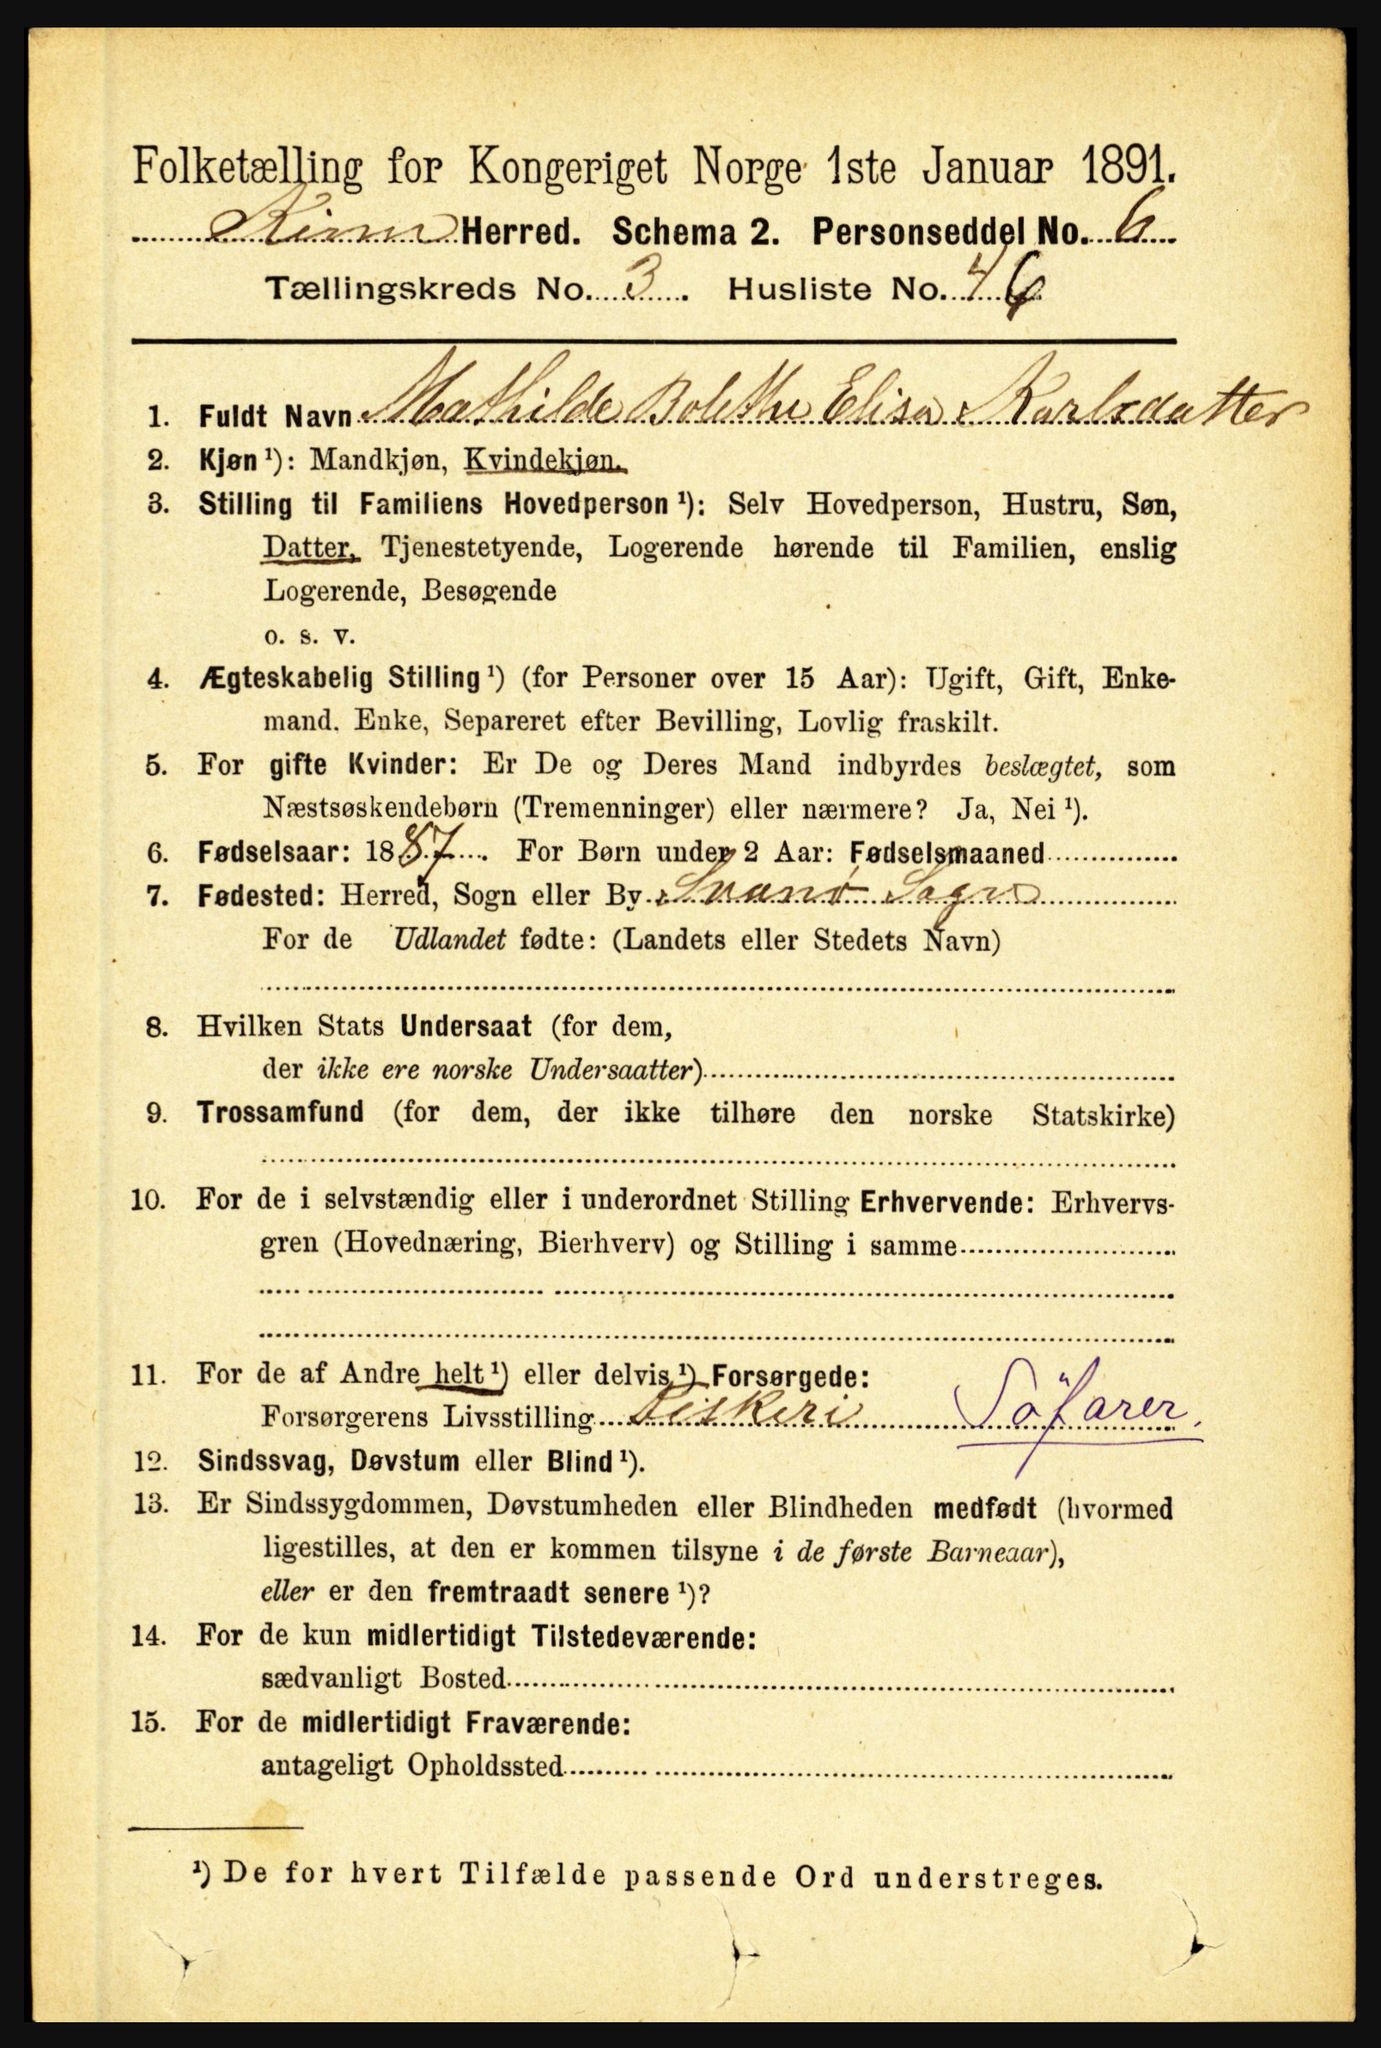 Folketælling for Kongeriget Norge 1ste Januar 1891.
Kinn Herred. Schema 2. Personseddel No. 6
Tællingskreds No. 3. Husliste No. 46
1. Fuldt Navn Mathilde Bolethe Elisa Karlsdatter
2. Kjøn ¹): Mandkjøn, Kvindekjøn.
3. Stilling til Familiens Hovedperson ¹): Selv Hovedperson, Hustru, Søn,
Datter, Tjenestetyende, Logerende hørende til Familien, enslig
Logerende, Besøgende
o. s. v.
4. Ægteskabelig Stilling ¹) (for Personer over 15 Aar): Ugift, Gift, Enke-
mand, Enke, Separeret efter Bevilling, Lovlig fraskilt.
5. For gifte Kvinder: Er De og Deres Mand indbyrdes beslægtet, som
Næstsøskendebørn (Tremenninger) eller nærmere? Ja, Nei ¹).
6. Fødselsaar: 1887. For Børn under 2 Aar: Fødselsmaaned
7. Fødested: Herred, Sogn eller By Svanø Sogn
For de Udlandet fødte: (Landets eller Stedets Navn)
8. Hvilken Stats Undersaat (for dem,
der ikke ere norske Undersaatter)
9. Trossamfund (for dem, der ikke tilhøre den norske Statskirke)
10. For de i selvstændig eller i underordnet Stilling Erhvervende: Erhvervs-
gren (Hovednæring, Bierhverv) og Stilling i samme
11. For de af Andre helt ¹) eller delvis ¹) Forsørgede:
Forsørgerens Livsstilling Fiskeri Söfarer.
12. Sindssvag, Døvstum eller Blind ¹).
13. Er Sindssygdommen, Døvstumheden eller Blindheden medfødt (hvormed
ligestilles, at den er kommen tilsyne i de første Barneaar),
eller er den fremtraadt senere ¹)?
14. For de kun midlertidigt Tilstedeværende:
sædvanligt Bosted
15. For de midlertidigt Fraværende:
antageligt Opholdssted
¹) De for hvert Tilfælde passende Ord understreges.